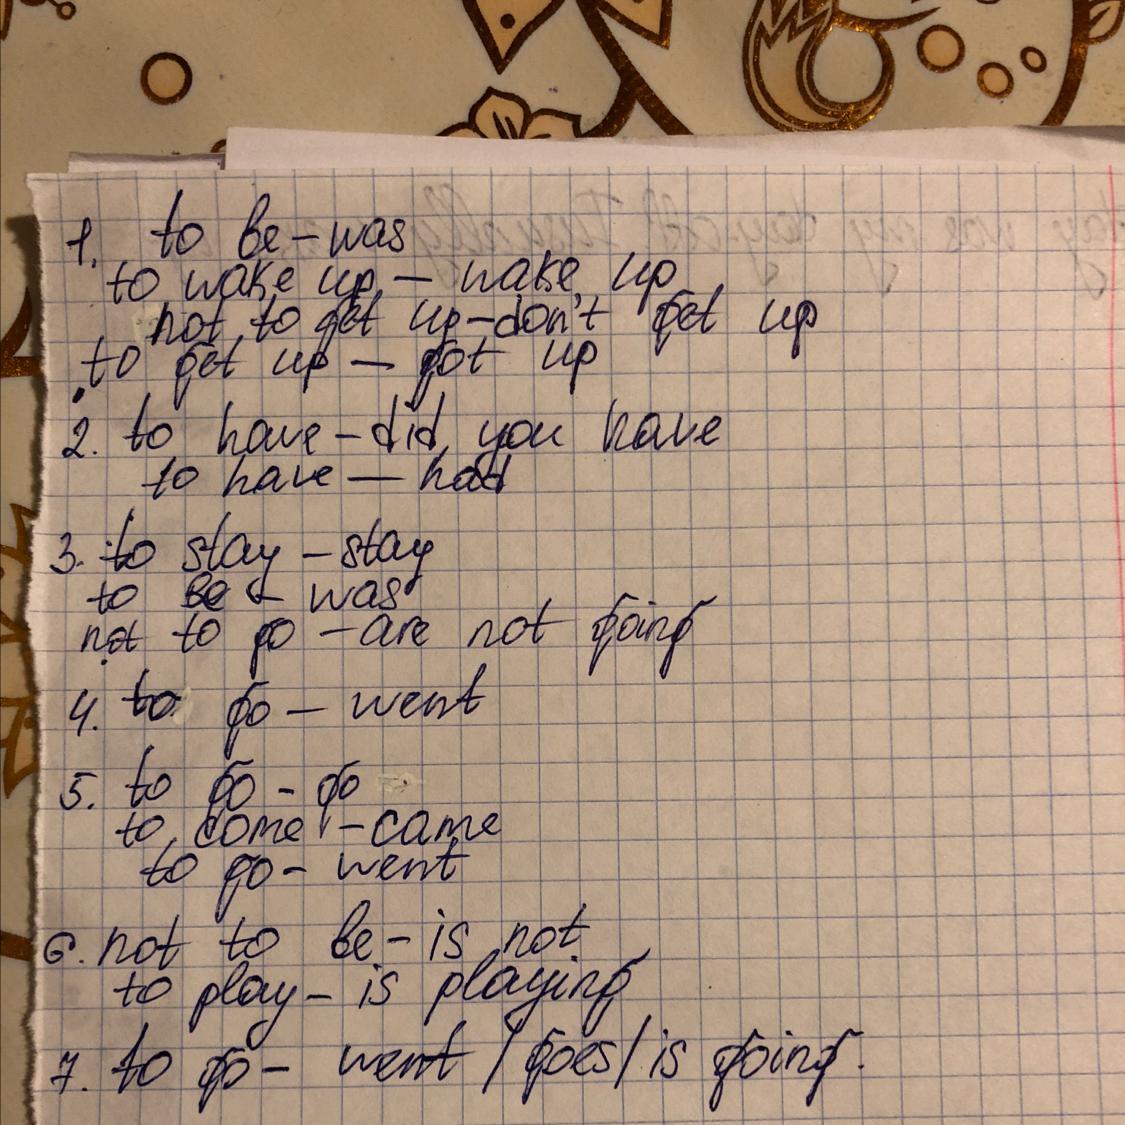 1. to be – was
to wake up – wake up
not to get up – don't get up
to get up – got up
2. to have – did you have
to have – had
3. to stay – stay
to be – was
not to go – are not going
4. to go – went
5. to go – go
to come – came
to go – went
6. not to be – is not
to play – is playing
7. to go – went / goes / is going.